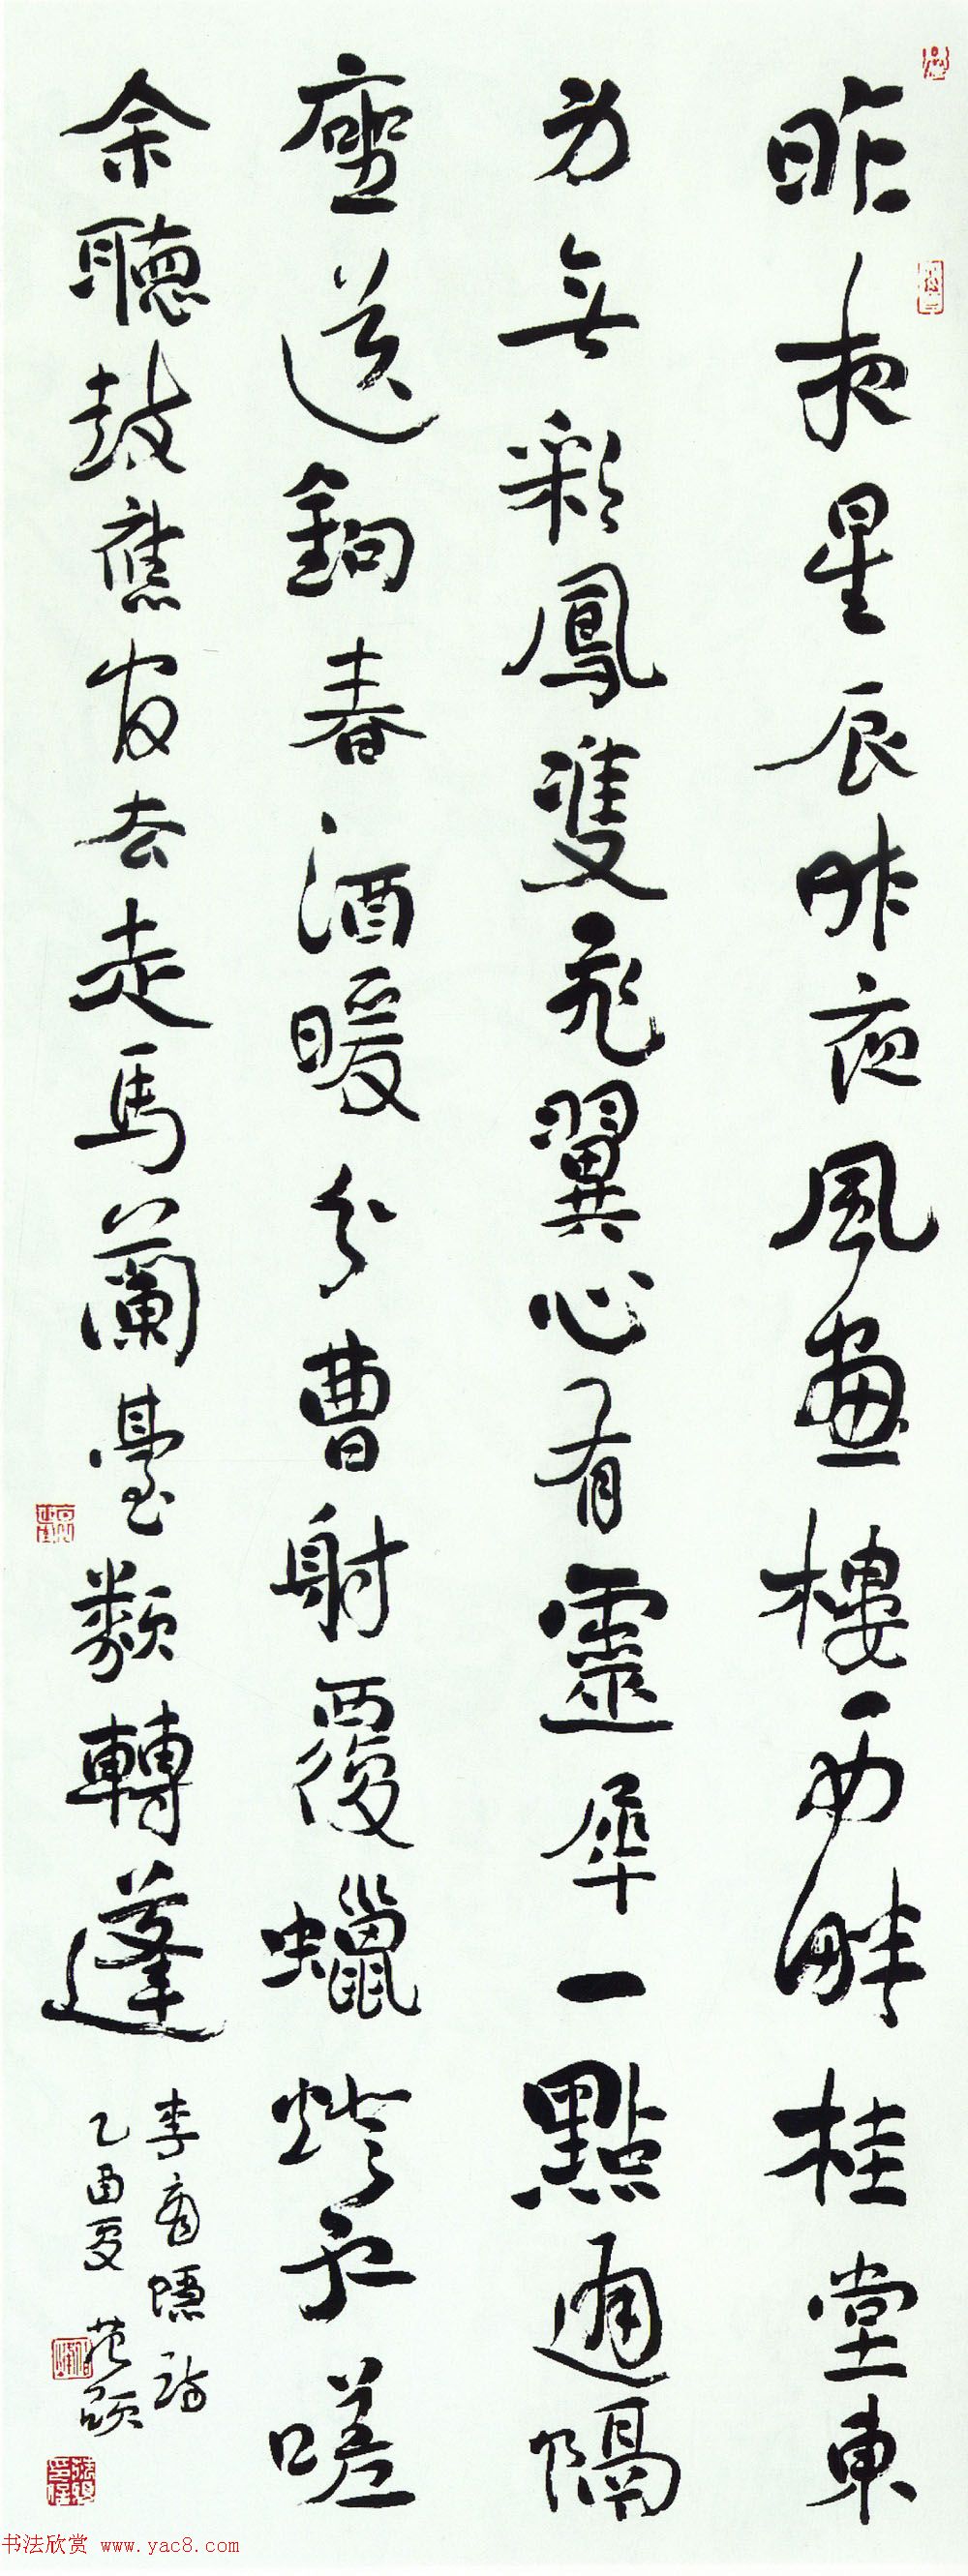 昨夜星辰昨夜風畫樓西畔桂堂東
身無彩鳳雙飛翼心有靈犀一點通隔
座送鉤春酒暖分曹射覆蠟燈紅嗟
余聽鼓應官去走馬蘭臺類轉蓬
李商隱詩
乙酉夏 范碩
书法欣赏 www.yac8.com